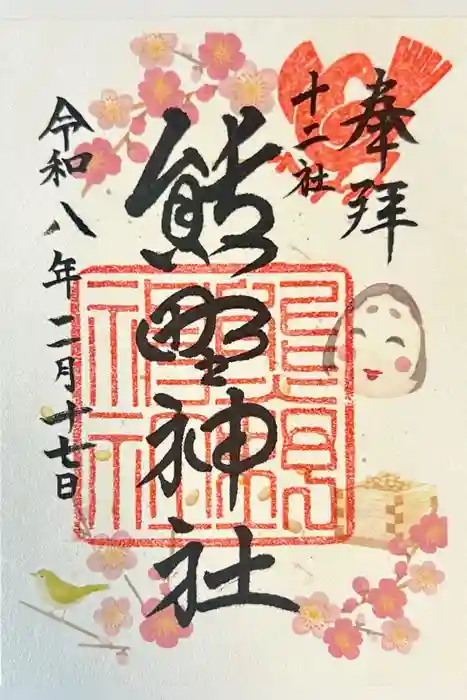 奉拝
十二社
熊野神社
令和八年二月十七日